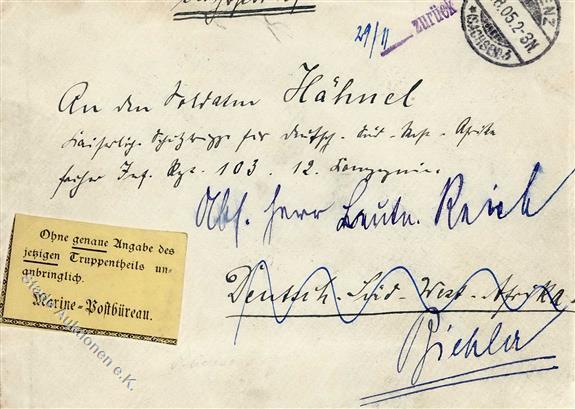 29/11
zurück
.05.2-3N
(SACHSEN)
An den Soldaten Hähnel
Kaiserliche Schutztruppe für Deutsch-Süd-West-Afrika
früher Inf. Rgt. 103. 12. Kompagnie.
Abs. Herr Leutn. Reich
Ohne genaue Angabe des
jetzigen Truppentheils un-
anbringlich.
Marine-Postbüreau.
Deutsch-Süd-West-Afrika